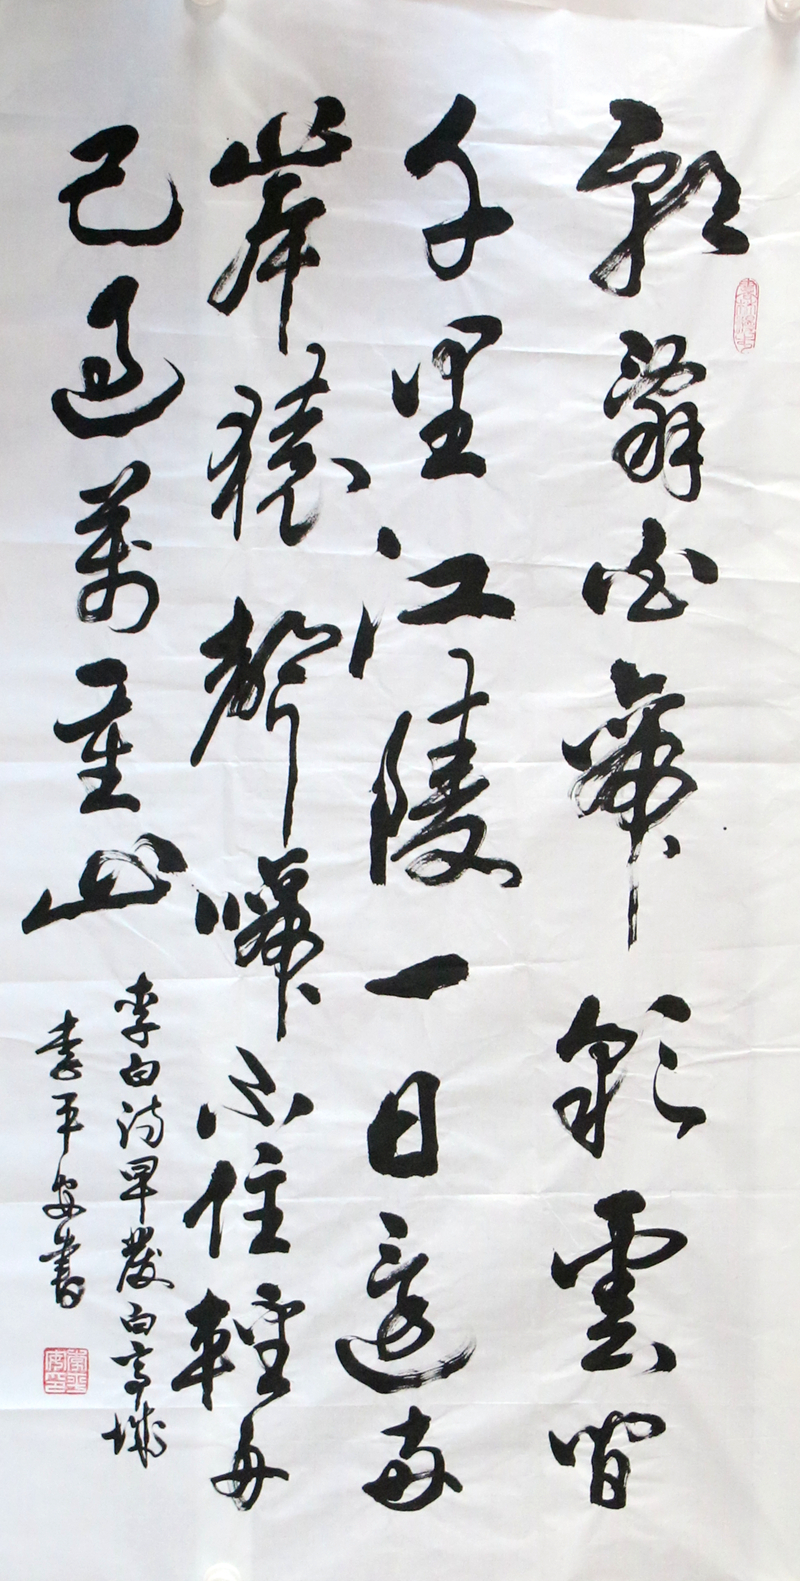 朝辭白帝彩雲間
千里江陵一日還兩
岸猿聲啼不住輕舟
已過萬重山
李白詩早發白帝城
李平安書